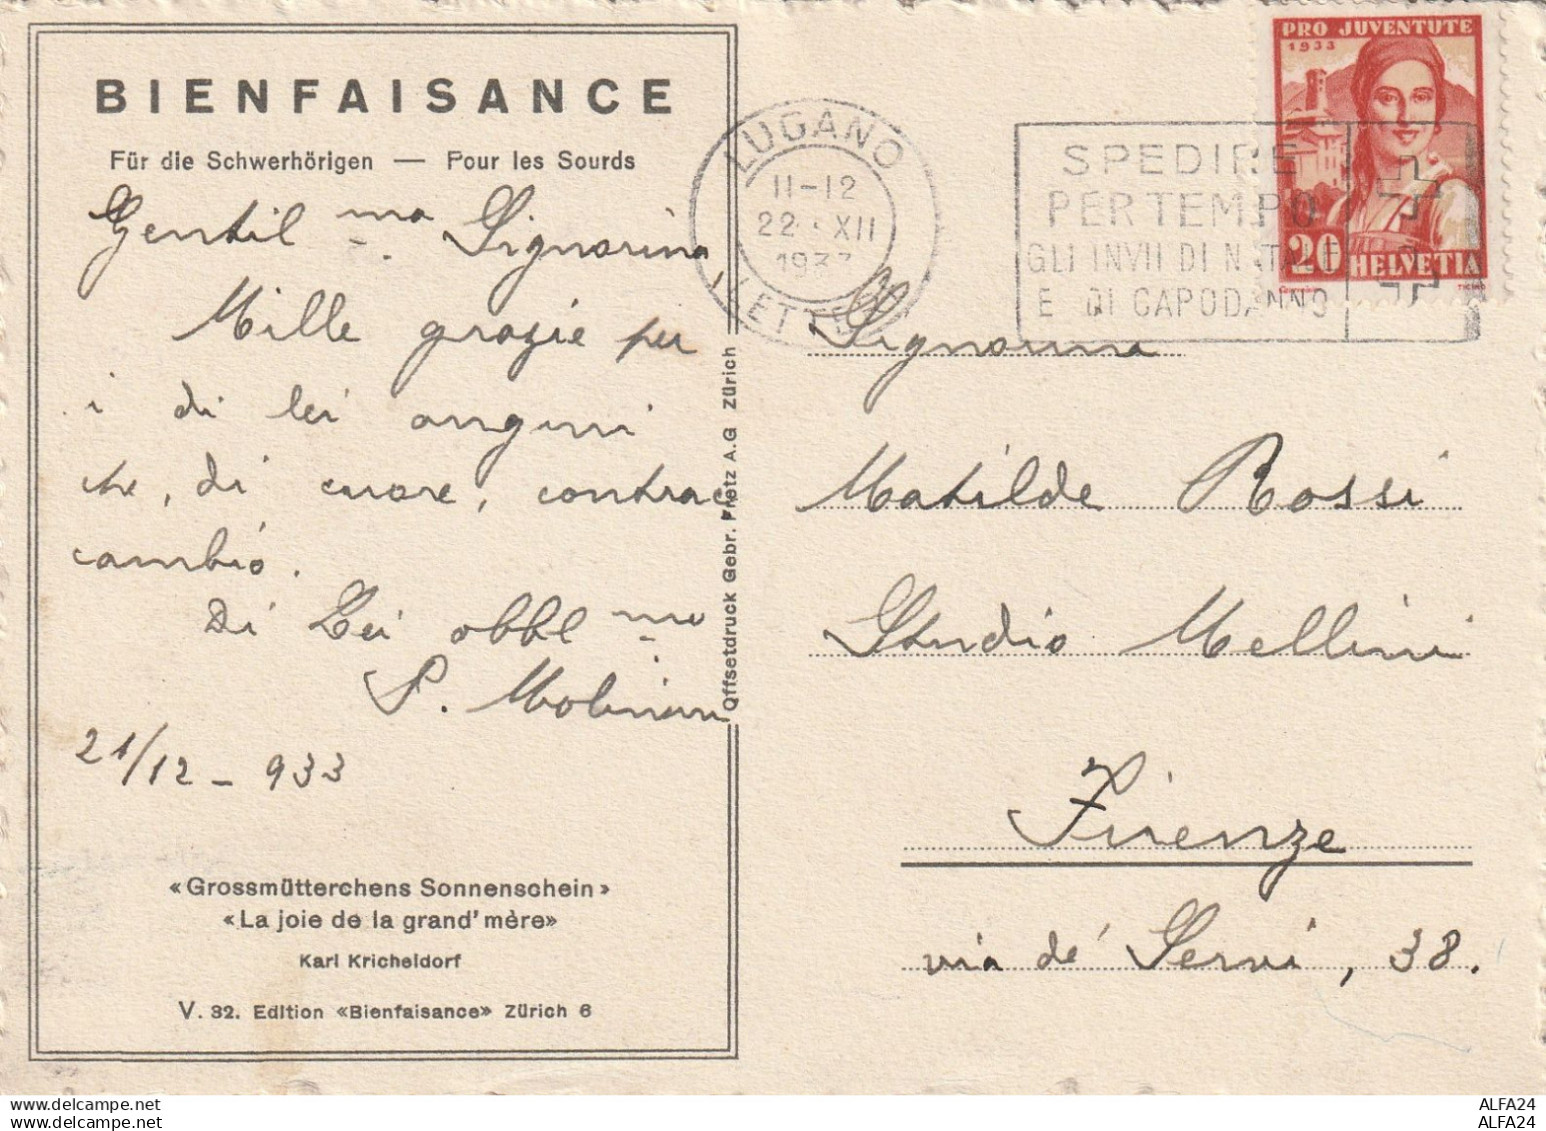 BIENFAISANCE
Für die Schwerhörigen — Pour les Sourds
Gentil ma Signorina
Mille grazie per
i di lei auguri
che, di cuore, contrac
cambio.
Di Lei obbl mo
P. Molinari
21/12 - 933
«Grossmütterchens Sonnenschein»
«La joie de la grand' mère»
Karl Kricheldorf
V. 32. Edition «Bienfaisance» Zürich 6
Offsetdruck Gebr. Fretz A.G Zürich
LUGANO
11-12
22. XII
1933
LETTERE
SPEDIRE
PER TEMPO
GLI INVII DI NATALE
E DI CAPODANNO
PRO JUVENTUTE
1933
20 HELVETIA
TICINO
Signorina
Matilde Rossi
Studio Mellini
Firenze
via de' Servi, 38.
delcampe.net
ALFA24
delcampe.net
ALFA24